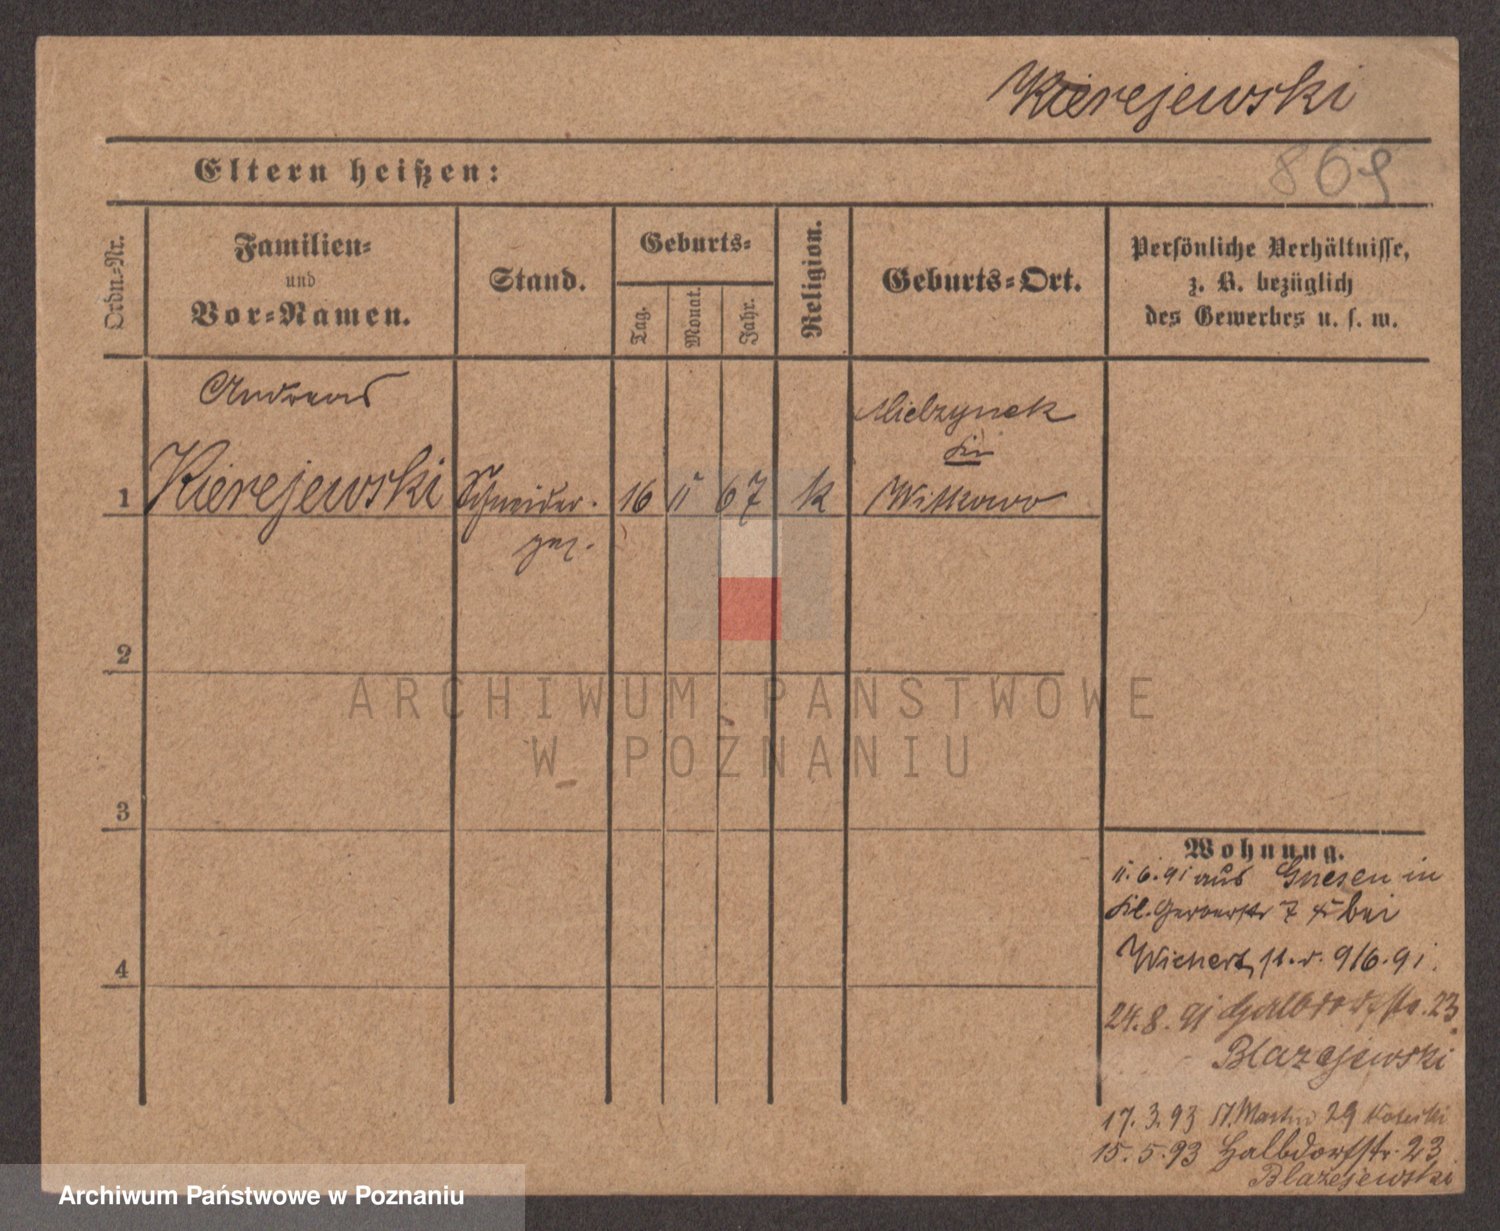 Kierejewski
869
Eltern heißen:
Ordn.-Nr.
Familien-
und
Vor-Namen.
Stand.
Geburts-
Tag.
Monat.
Jahr.
Religion.
Geburts-Ort.
Persönliche Verhältnisse,
z. B. bezüglich
des Gewerbes u. s. w.
Andreas
Mielzynek
Witkowo
1 Kierejewski Schneider- 16 11 67 k
2
ARCHIWUM PAŃSTWOWE
W POZNANIU
3
4
Wohnung.
11.6.91 aus Gnesen in
Kl. Gerberstr 7 bei
Wichert, 9/6.91.
24.8.91 Halbdorfstr. 23
Blazejewski
17.3.93 St. Martin 29
15.5.93 Halbdorfstr. 23
Blazejewski
Archiwum Państwowe w Poznaniu